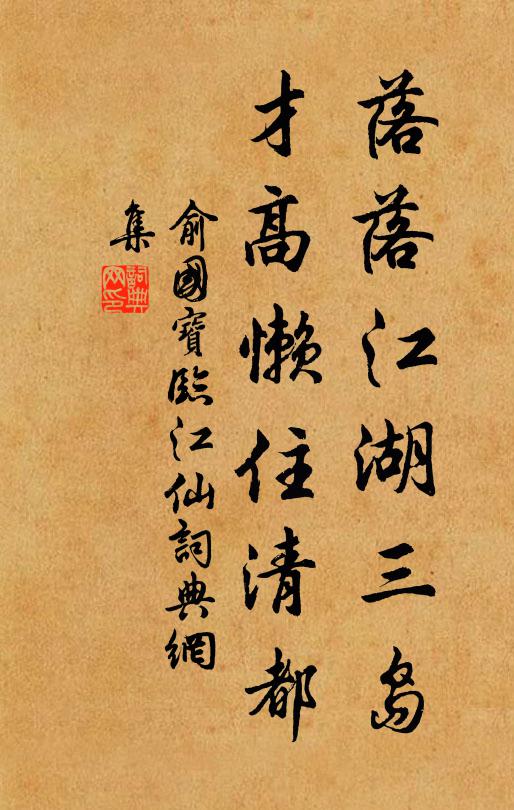 落落江湖三島
才高懶住清都
俞國寶臨江仙詞典網
集
詞典網印